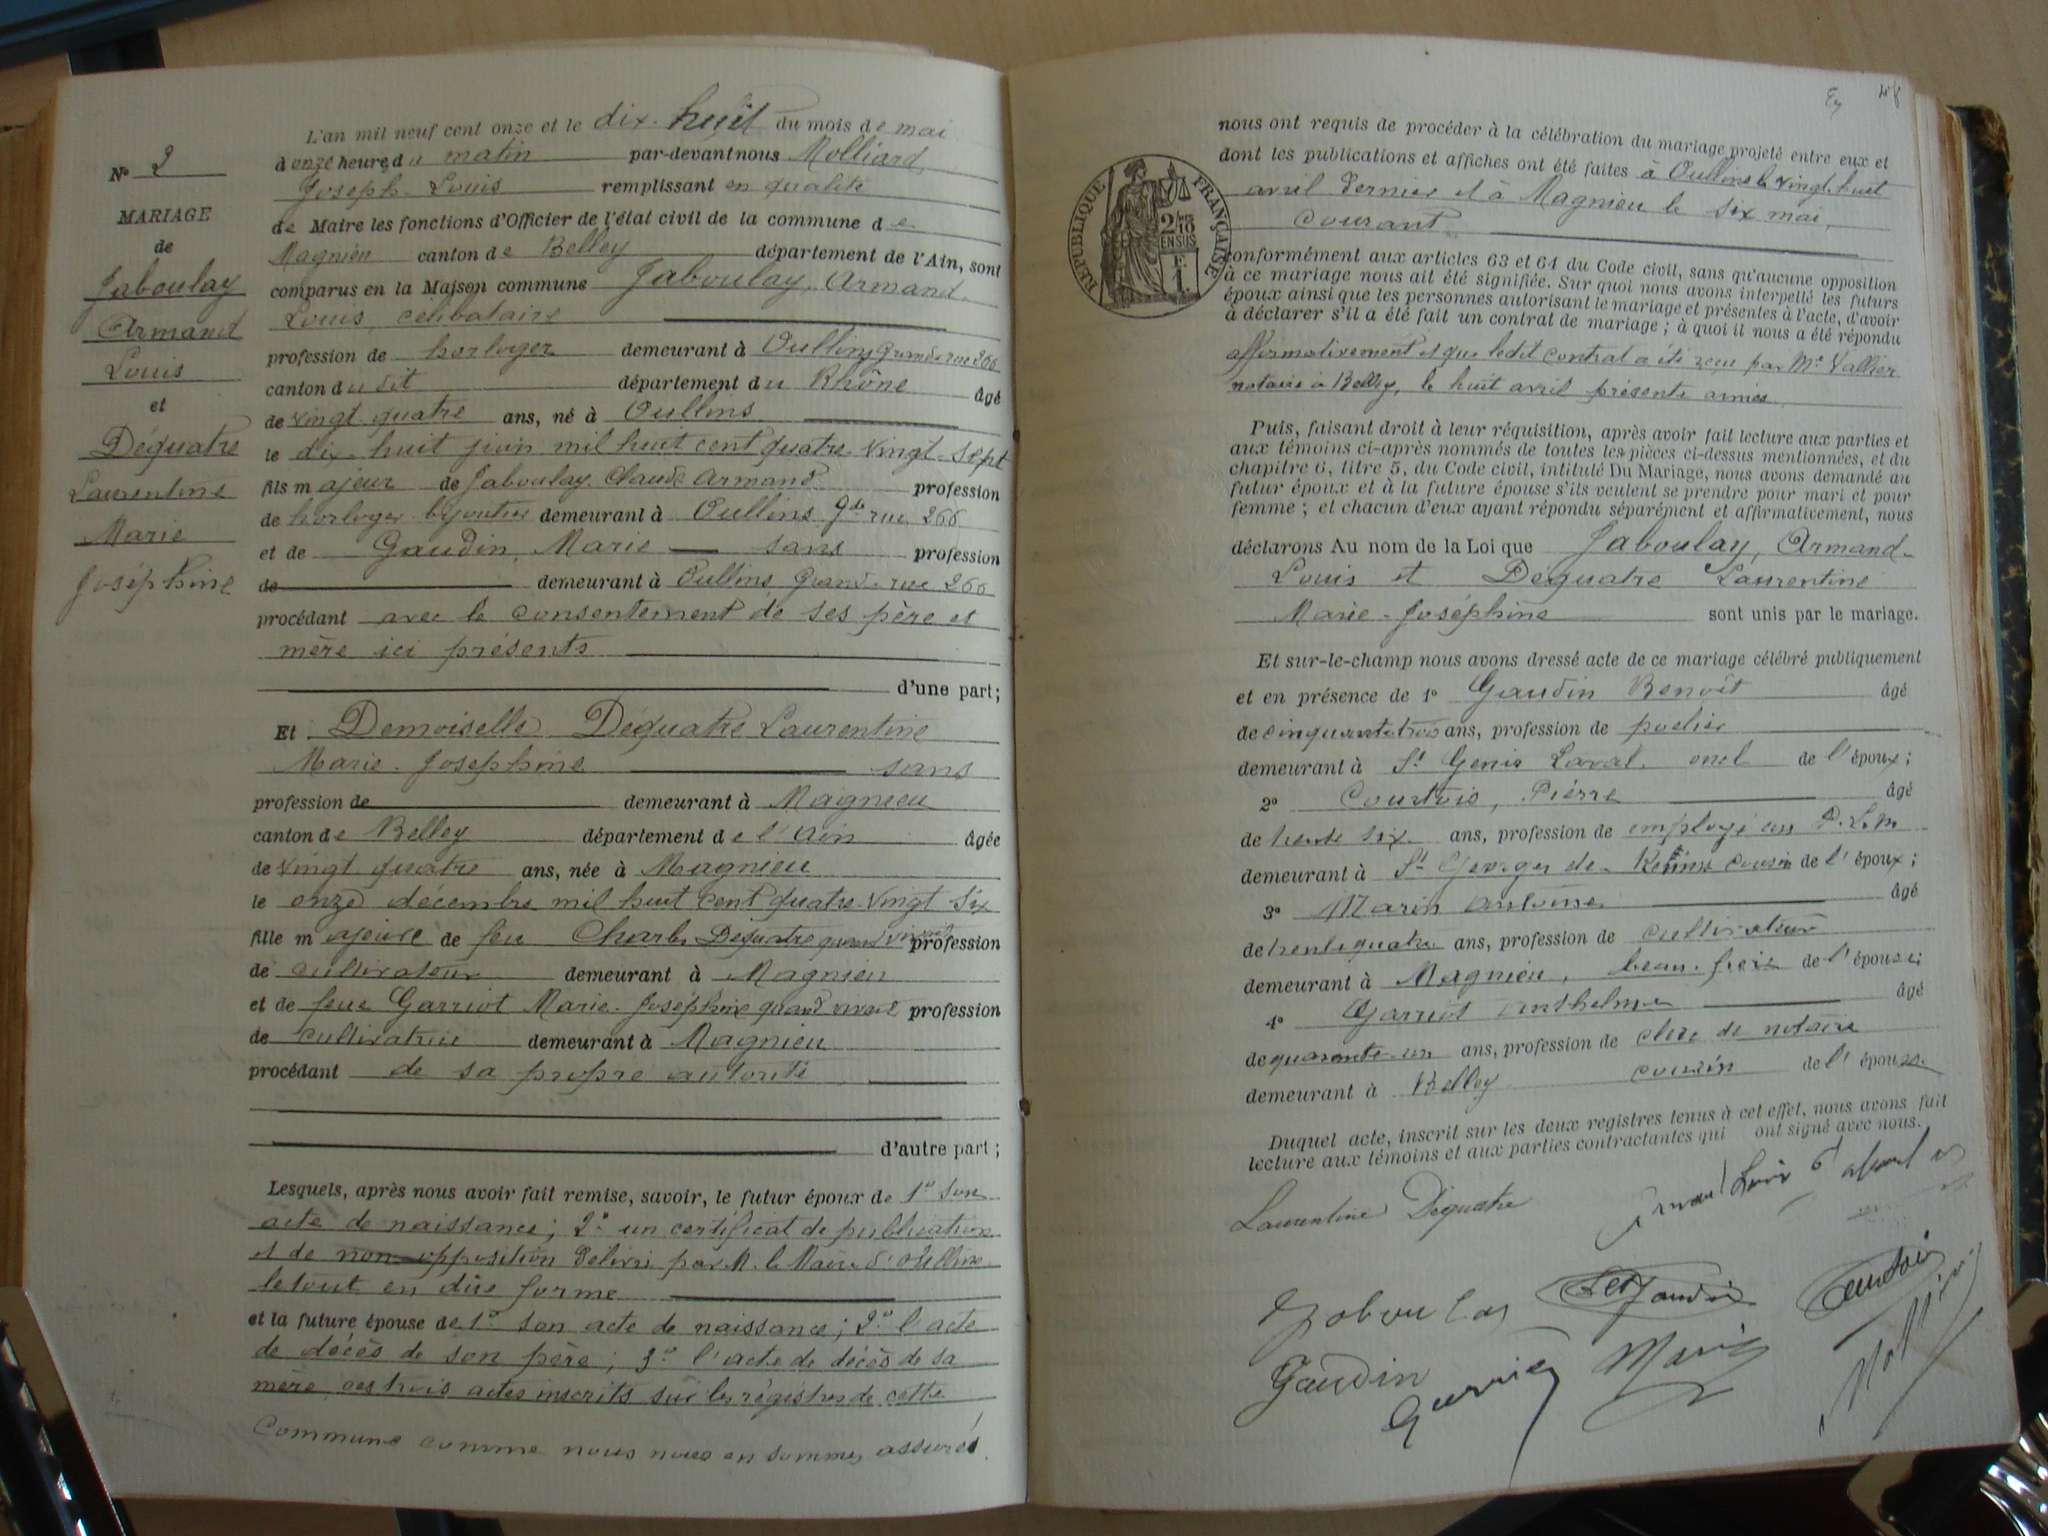 L'an mil neuf cent onze et le dix-huit du mois de mai
à onze heures du matin par-devant nous Molliard,
Joseph-Louis remplissant en qualité
de Maire les fonctions d'Officier de l'état civil de la commune de
Magnieu canton de Belley département de l'Ain, sont
comparus en la Maison commune Jaboulay, Armand-
Louis, célibataire
profession de horloger demeurant à Oullins Grande rue 266
canton dudit département du Rhône âgé
de vingt-quatre ans, né à Oullins
le dix-huit juin mil huit cent quatre-vingt-sept
fils majeur de Jaboulay Claude Armand profession
de horloger bijoutier demeurant à Oullins Gde rue 266
et de Gaudin, Marie sans profession
de demeurant à Oullins, Grande-rue 266
procédant avec le consentement de ses père et
mère ici présents
d'une part;
Et Demoiselle Déquatre Laurentine
Marie-Joséphine sans
profession de demeurant à Magnieu
canton de Belley département de l'Ain âgée
de vingt quatre ans, née à Magnieu
le onze décembre mil huit cent quatre-vingt six
fille majeure de feu Charles Déquatre quand vivait profession
de cultivateur demeurant à Magnieu
et de feue Garriot Marie-Joséphine quand vivait profession
de cultivatrice demeurant à Magnieu
procédant de sa propre autorité
d'autre part;
Lesquels, après nous avoir fait remise, savoir, le futur époux de 1° son
acte de naissance; 2° un certificat de publication
et de non-opposition délivré par M. le Maire d'Oullins
le tout en due forme
et la future épouse de 1° son acte de naissance; 2° l'acte
de décès de son père; 3° l'acte de décès de sa
mère, ces trois actes inscrits sur les régistres de cette
Commune comme nous nous en sommes assurés.
N° 2
MARIAGE
de
Jaboulay
Armand
Louis
et
Déquatre
Laurentine
Marie
Joséphine
48
nous ont requis de procéder à la célébration du mariage projeté entre eux et
dont les publications et affiches ont été faites à Oullins le vingt-huit
avril dernier et à Magnieu le six mai,
courant
RÉPUBLIQUE FRANÇAISE
2/10
EN SUS
F.
1.
conformément aux articles 63 et 64 du Code civil, sans qu'aucune opposition
à ce mariage nous ait été signifiée. Sur quoi nous avons interpellé les futurs
époux ainsi que les personnes autorisant le mariage et présentes à l'acte, d'avoir
à déclarer s'il a été fait un contrat de mariage; à quoi il nous a été répondu
affirmativement et que ledit contrat a été reçu par Me Vallier
notaire à Belley, le huit avril présente année
Puis, faisant droit à leur réquisition, après avoir fait lecture aux parties et
aux témoins ci-après nommés de toutes les pièces ci-dessus mentionnées, et du
chapitre 6, titre 5, du Code civil, intitulé Du Mariage, nous avons demandé au
futur époux et à la future épouse s'ils veulent se prendre pour mari et pour
femme; et chacun d'eux ayant répondu séparément et affirmativement, nous
déclarons Au nom de la Loi que Jaboulay, Armand-
Louis et Déquatre Laurentine
Marie-Joséphine sont unis par le mariage.
Et sur-le-champ nous avons dressé acte de ce mariage célébré publiquement
et en présence de 1° Gaudin Benoît âgé
de cinquante trois ans, profession de
demeurant à St Genis Laval, oncl de l'époux;
2° Courtois, Pierre âgé
de trente six ans, profession de employé au P.L.M
demeurant à St Georges de Reneins cousin de l'époux;
3° Marin Antoine âgé
de trente quatre ans, profession de cultivateur
demeurant à Magnieu, beau-frère de l'épouse;
4° Garriot Anthelme âgé
de quarante-un ans, profession de clerc de notaire
demeurant à Belley cousin de l'épouse
Duquel acte, inscrit sur les deux registres tenus à cet effet, nous avons fait
lecture aux témoins et aux parties contractantes qui ont signé avec nous.
Laurentine Déquatre
Jaboulay
Gaudin
Marin